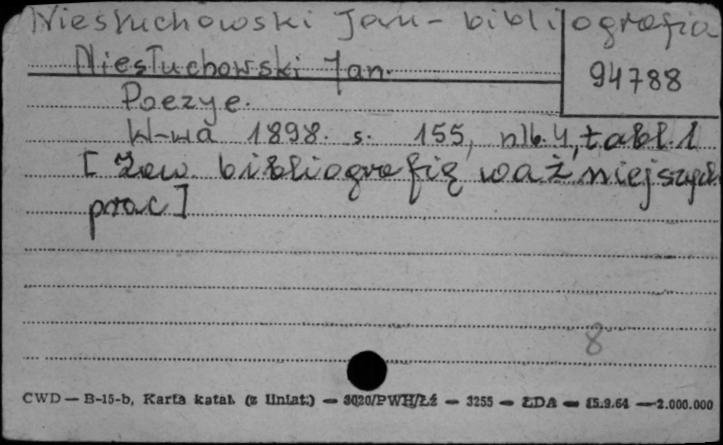 Niesłuchowski Jan - bibliografia
Niesłuchowski Jan.
94788
Poezye.
W-wa 1898. s. 155, nlb. 4, tabl. 1
[Zaw. bibliografię ważniejszych
prac]
8
CWD — B-15-b, Karta katal. (z liniat.) — 3020/PWH/Łź — 3255 — ŁDA — 15.9.64 — 2.000.000